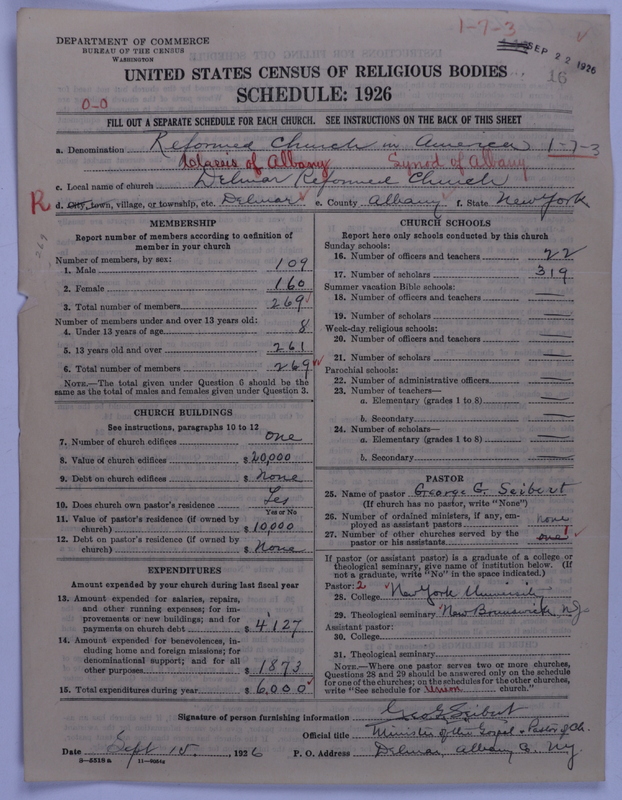 1-7-3
DEPARTMENT OF COMMERCE
BUREAU OF THE CENSUS
WASHINGTON
SEP 22 1926
16
UNITED STATES CENSUS OF RELIGIOUS BODIES
SCHEDULE: 1926
0-0
FILL OUT A SEPARATE SCHEDULE FOR EACH CHURCH. SEE INSTRUCTIONS ON THE BACK OF THIS SHEET
a. Denomination Reformed Church in America 1-7-3
Classis of Albany Synod of Albany
c. Local name of church Delmar Reformed Church
R d. City, town, village, or township, etc. Delmar e. County Albany f. State New York
269
MEMBERSHIP
Report number of members according to definition of member in your church
Number of members, by sex:
1. Male 109
2. Female 160
3. Total number of members 269
Number of members under and over 13 years old:
4. Under 13 years of age 8
5. 13 years old and over 261
6. Total number of members 269
NOTE.—The total given under Question 6 should be the same as the total of males and females given under Question 3.
CHURCH BUILDINGS
See instructions, paragraphs 10 to 12
7. Number of church edifices one
8. Value of church edifices $ 20,000
9. Debt on church edifices $ None
10. Does church own pastor's residence Yes
Yes or No
11. Value of pastor's residence (if owned by church) $ 10,000
12. Debt on pastor's residence (if owned by church) $ None
EXPENDITURES
Amount expended by your church during last fiscal year
13. Amount expended for salaries, repairs, and other running expenses; for improvements or new buildings; and for payments on church debt $ 4127
14. Amount expended for benevolences, including home and foreign missions; for denominational support; and for all other purposes $ 1873
15. Total expenditures during year $ 6,000
CHURCH SCHOOLS
Report here only schools conducted by this church
Sunday schools:
16. Number of officers and teachers 22
17. Number of scholars 319
Summer vacation Bible schools:
18. Number of officers and teachers
19. Number of scholars
Week-day religious schools:
20. Number of officers and teachers
21. Number of scholars
Parochial schools:
22. Number of administrative officers
23. Number of teachers—
a. Elementary (grades 1 to 8)
b. Secondary
24. Number of scholars—
a. Elementary (grades 1 to 8)
b. Secondary
PASTOR
25. Name of pastor George G. Seibert
(If church has no pastor, write "None")
26. Number of ordained ministers, if any, employed as assistant pastors none
27. Number of other churches served by the pastor or his assistants one 1
If pastor (or assistant pastor) is a graduate of a college or theological seminary, give name of institution below. (If not a graduate, write "No" in the space indicated.)
Pastor: 2
28. College New York University
29. Theological seminary New Brunswick, NJ
Assistant pastor:
30. College
31. Theological seminary
NOTE.—Where one pastor serves two or more churches, Questions 28 and 29 should be answered only on the schedule for one of the churches; on the schedules for the other churches, write "See schedule for Union church."
Signature of person furnishing information Geo G Seibert
Official title Minister of the Gospel & Pastor of Ch.
Date Sept 15, 1926 P. O. Address Delmar, Albany Co. NY.
8—5518a 11—9054